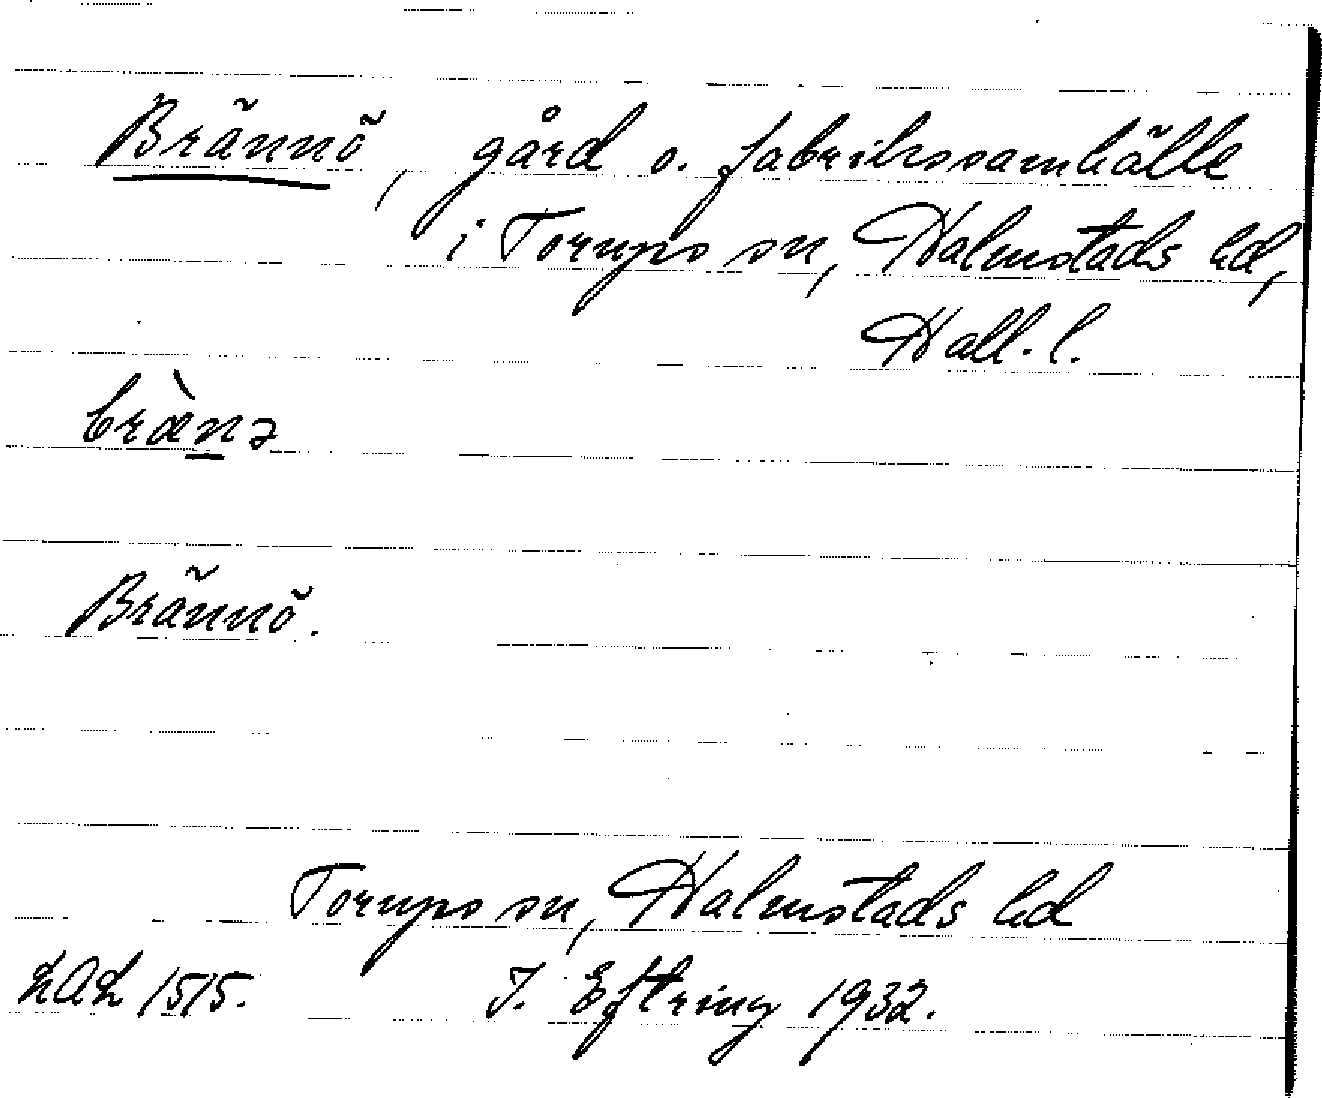 Brännö, gård o. fabrikssamhälle
i Torups sn, Halmstads hd,
Hall. l.
bræ̀nə
Brännö.
Torups sn, Halmstads hd
LAL 1515. J. Eftring 1932.